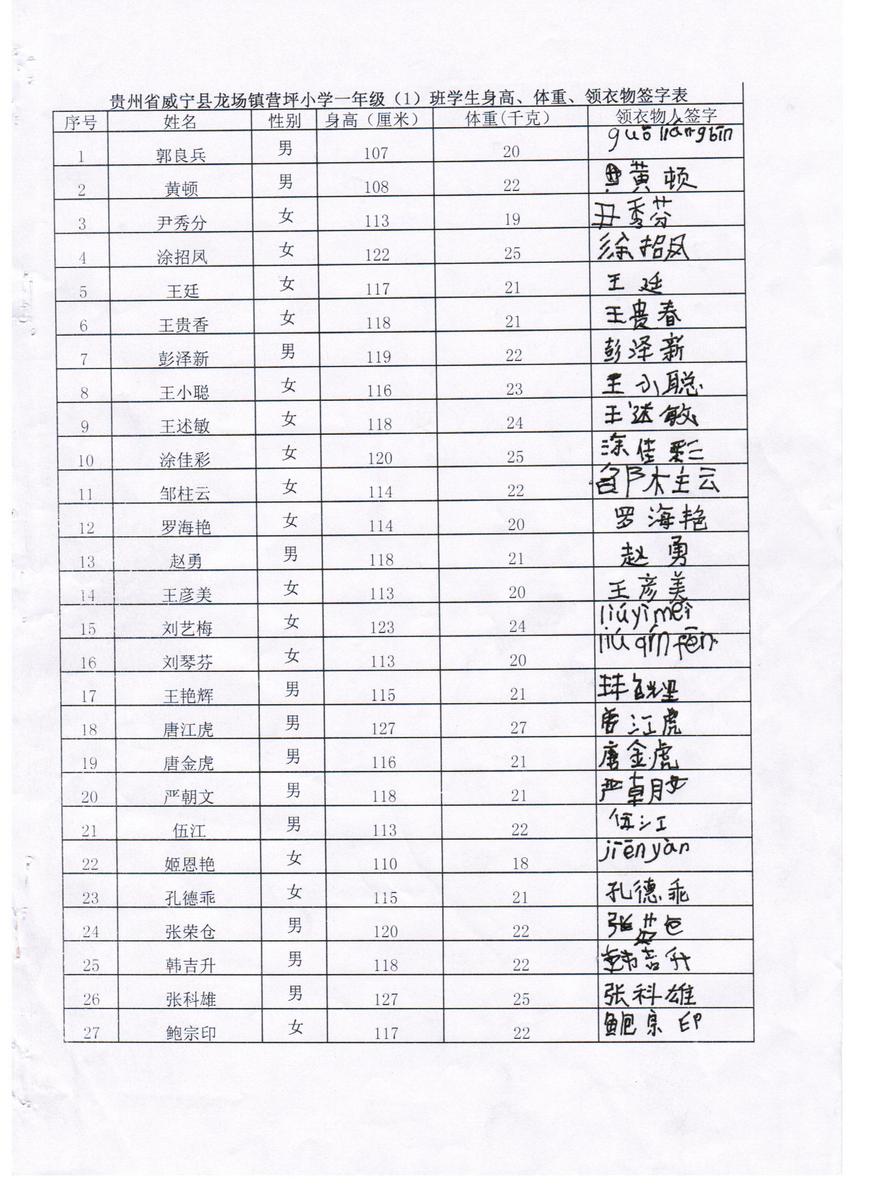 贵州省威宁县龙场镇营坪小学一年级（1）班学生身高、体重、领衣物签字表
序号 姓名 性别 身高（厘米） 体重(千克) 领衣物人签字
1 郭良兵 男 107 20 guō liángbīn
2 黄顿 男 108 22 黄顿
3 尹秀分 女 113 19 尹秀芬
4 涂招凤 女 122 25 涂招凤
5 王廷 女 117 21 王廷
6 王贵香 女 118 21 王贵春
7 彭泽新 男 119 22 彭泽新
8 王小聪 女 116 23 王小聪
9 王述敏 女 118 24 王述敏
10 涂佳彩 女 120 25 涂佳彩
11 邹柱云 女 114 22 邹柱云
12 罗海艳 女 114 20 罗海艳
13 赵勇 男 118 21 赵勇
14 王彦美 女 113 20 王彦美
15 刘艺梅 女 123 24 liúyìmeī
16 刘琴芬 女 113 20 liú qín fēn
17 王艳辉 男 115 21
18 唐江虎 男 127 27 唐江虎
19 唐金虎 男 116 21 唐金虎
20 严朝文 男 118 21 严朝文
21 伍江 男 113 22 伍江
22 姬恩艳 女 110 18 jīēnyàn
23 孔德乖 女 115 21 孔德乖
24 张荣仓 男 120 22 张荣仓
25 韩吉升 男 118 22 韩吉升
26 张科雄 男 127 25 张科雄
27 鲍宗印 女 117 22 鲍宗印